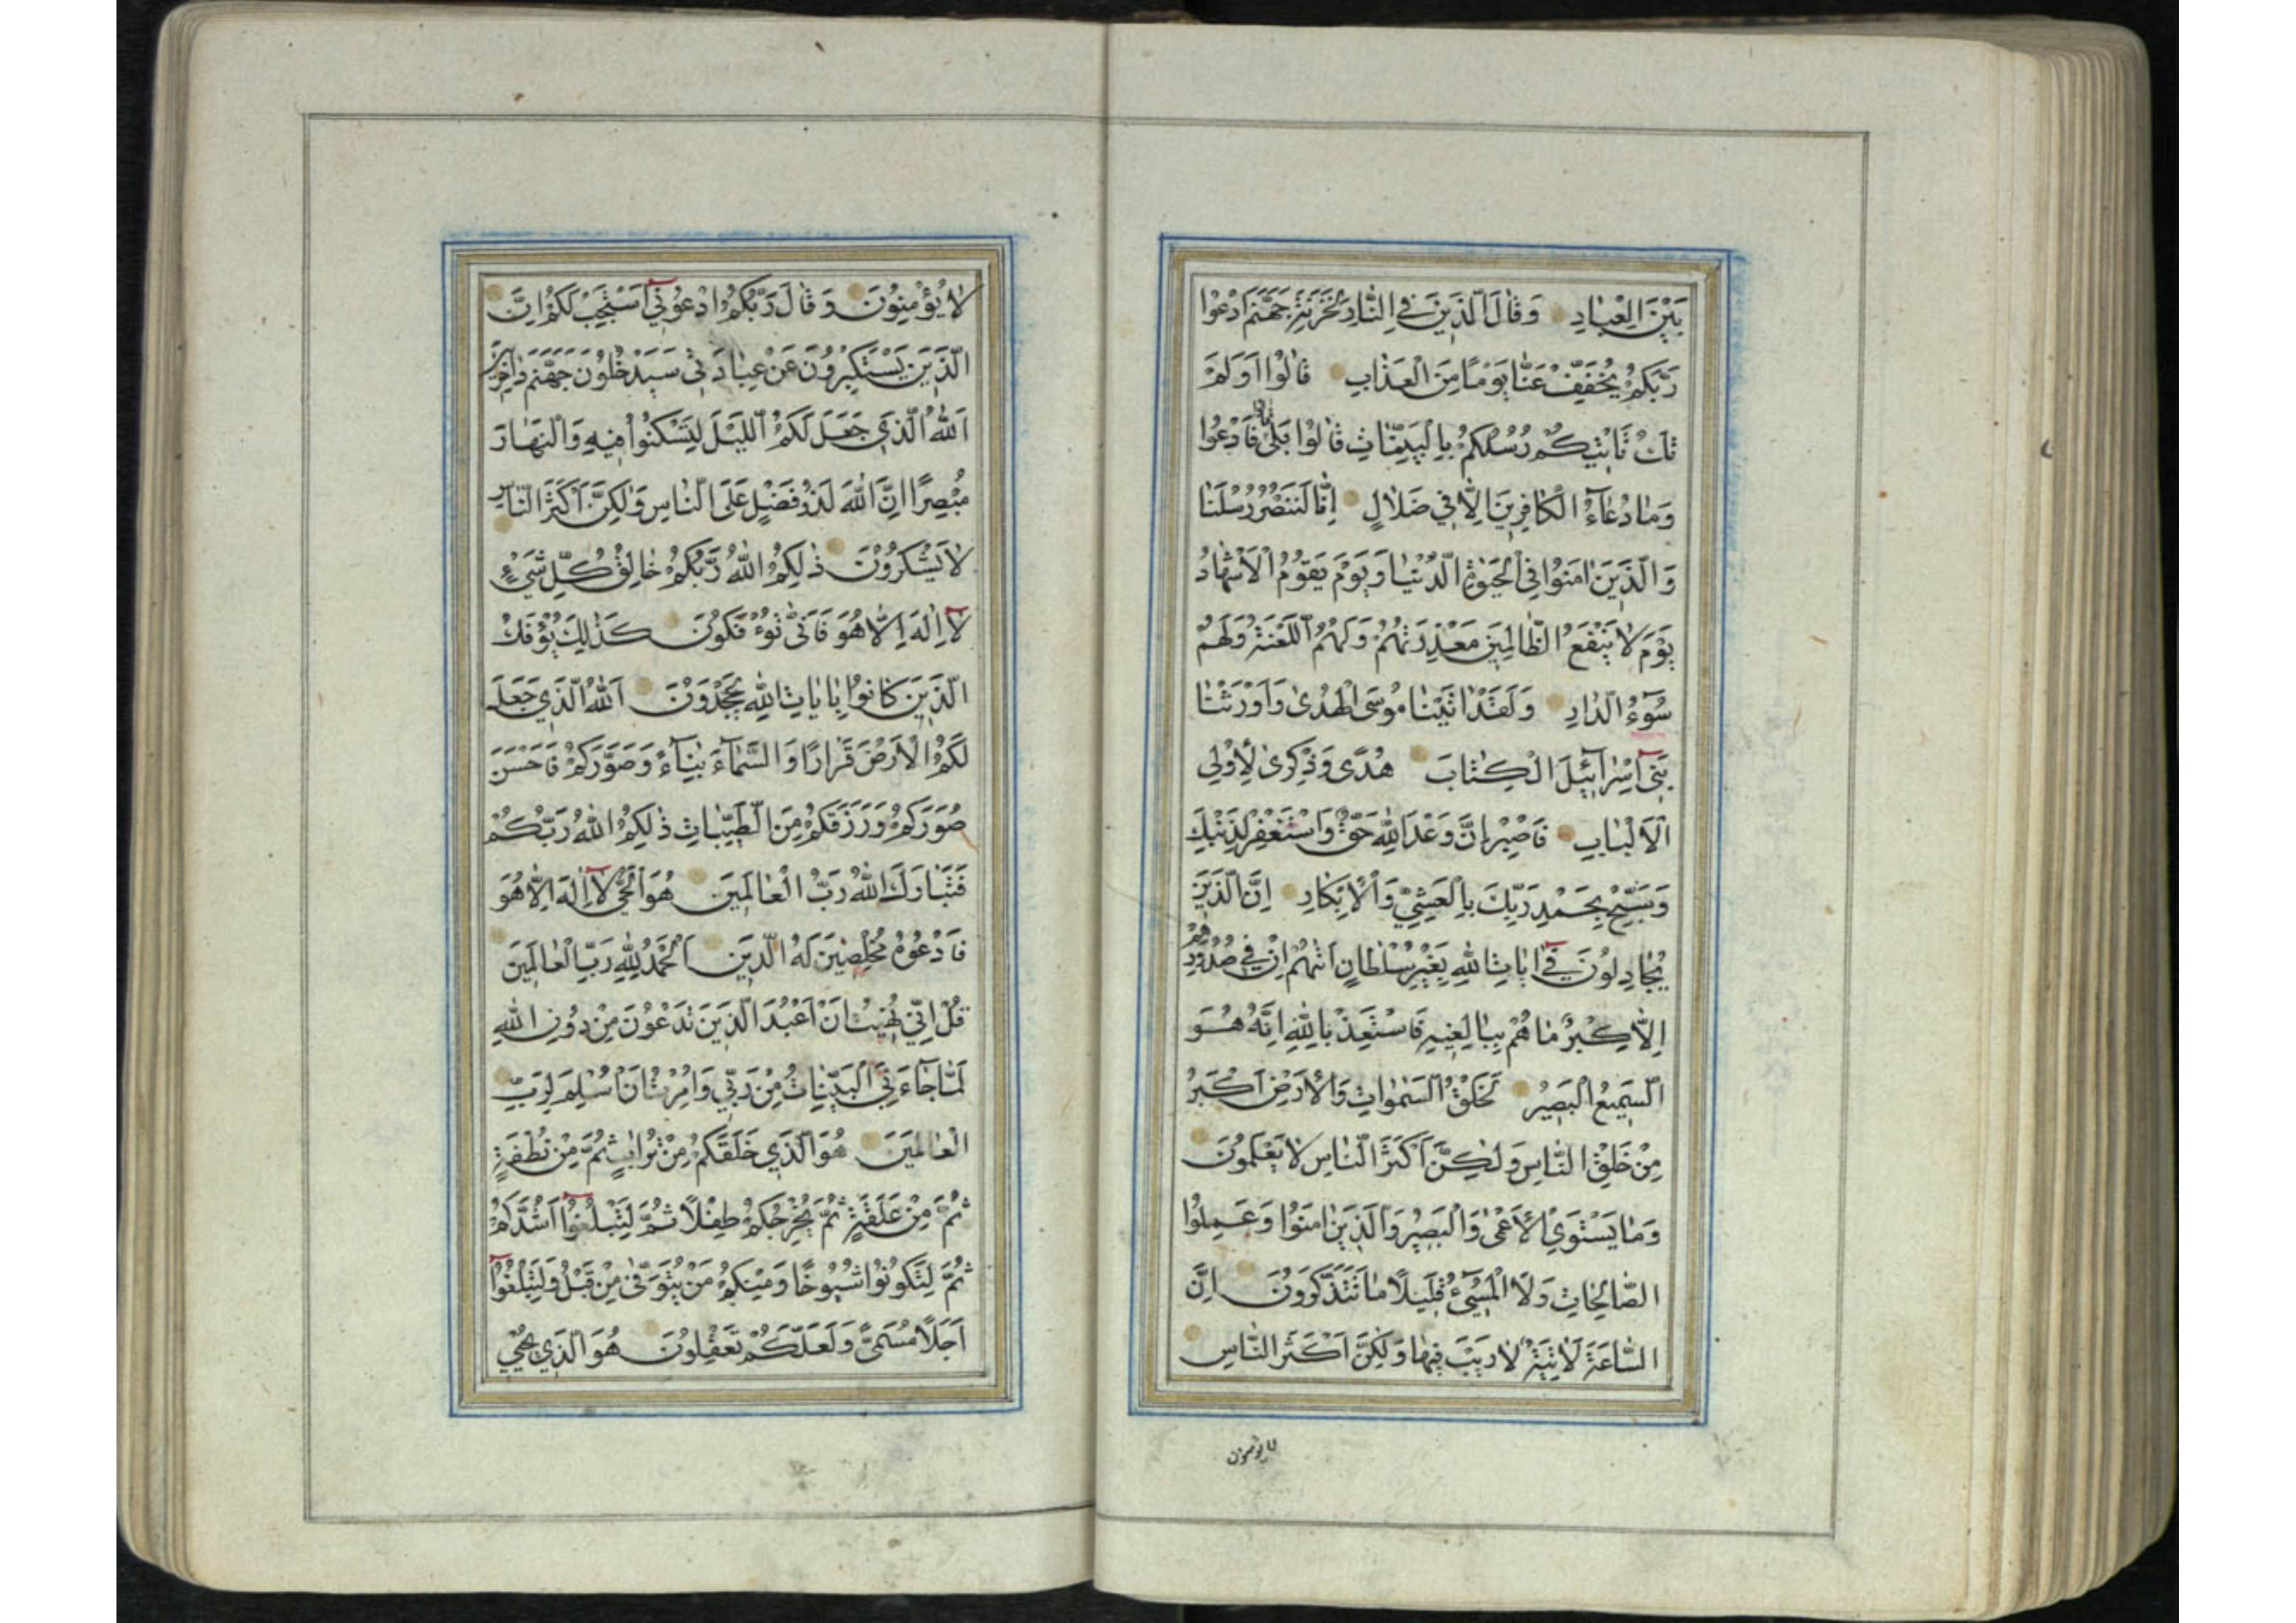 بَيْنَ الْعِبَادِ وَقَالَ الَّذِينَ فِي النَّارِ لِخَزَنَةِ جَهَنَّمَ ادْعُوا
رَبَّكُمْ يُخَفِّفْ عَنَّا يَوْمًا مِنَ الْعَذَابِ قَالُوا أَوَلَمْ
تَكُ تَأْتِيكُمْ رُسُلُكُمْ بِالْبَيِّنَاتِ قَالُوا بَلَىٰ قَالُوا فَادْعُوا
وَمَا دُعَاءُ الْكَافِرِينَ إِلَّا فِي ضَلَالٍ إِنَّا لَنَنْصُرُ رُسُلَنَا
وَالَّذِينَ امَنُوا فِي الْحَيٰوةِ الدُّنْيَا وَيَوْمَ يَقُومُ الْأَشْهَادُ
يَوْمَ لَا يَنْفَعُ الظَّالِمِينَ مَعْذِرَتُهُمْ وَلَهُمُ اللَّعْنَةُ وَلَهُمْ
سُوءُ الدَّارِ وَلَقَدْ اتَيْنَا مُوسَى الْهُدَىٰ وَأَوْرَثْنَا
بَنِي إِسْرَآئِيلَ الْكِتَابَ هُدًى وَذِكْرَىٰ لِأُولِي
الْأَلْبَابِ فَاصْبِرْ إِنَّ وَعْدَ اللَّهِ حَقٌّ وَاسْتَغْفِرْ لِذَنْبِكَ
وَسَبِّحْ بِحَمْدِ رَبِّكَ بِالْعَشِيِّ وَالْإِبْكَارِ إِنَّ الَّذِينَ
يُجَادِلُونَ فِي ايَاتِ اللَّهِ بِغَيْرِ سُلْطَانٍ أَتٰهُمْ إِنْ فِي صُدُورِهِمْ
إِلَّا كِبْرٌ مَا هُمْ بِبَالِغِيهِ فَاسْتَعِذْ بِاللَّهِ إِنَّهُ هُوَ
السَّمِيعُ الْبَصِيرُ لَخَلْقُ السَّمٰوَاتِ وَالْأَرْضِ أَكْبَرُ
مِنْ خَلْقِ النَّاسِ وَلٰكِنَّ أَكْثَرَ النَّاسِ لَا يَعْلَمُونَ
وَمَا يَسْتَوِي الْأَعْمَىٰ وَالْبَصِيرُ وَالَّذِينَ امَنُوا وَعَمِلُوا
الصَّالِحَاتِ وَلَا الْمُسِيءُ قَلِيلًا مَا تَتَذَكَّرُونَ إِنَّ
السَّاعَةَ لَاتِيَةٌ لَا رَيْبَ فِيهَا وَلٰكِنَّ أَكْثَرَ النَّاسِ
لا يؤمنون
لَا يُؤْمِنُونَ وَقَالَ رَبُّكُمُ ادْعُونِي أَسْتَجِبْ لَكُمْ إِنَّ
الَّذِينَ يَسْتَكْبِرُونَ عَنْ عِبَادَتِي سَيَدْخُلُونَ جَهَنَّمَ دَاخِرِينَ
اَللَّهُ الَّذِي جَعَلَ لَكُمُ اللَّيْلَ لِتَسْكُنُوا فِيهِ وَالنَّهَارَ
مُبْصِرًا إِنَّ اللَّهَ لَذُو فَضْلٍ عَلَى النَّاسِ وَلٰكِنَّ أَكْثَرَ النَّاسِ
لَا يَشْكُرُونَ ذٰلِكُمُ اللَّهُ رَبُّكُمْ خَالِقُ كُلِّ شَيْءٍ
لَا إِلٰهَ إِلَّا هُوَ فَأَنَّىٰ تُؤْفَكُونَ كَذٰلِكَ يُؤْفَكُ
الَّذِينَ كَانُوا بِايَاتِ اللَّهِ يَجْحَدُونَ اَللَّهُ الَّذِي جَعَلَ
لَكُمُ الْأَرْضَ قَرَارًا وَالسَّمَاءَ بِنَاءً وَصَوَّرَكُمْ فَأَحْسَنَ
صُوَرَكُمْ وَرَزَقَكُمْ مِنَ الطَّيِّبَاتِ ذٰلِكُمُ اللَّهُ رَبُّكُمْ
فَتَبَارَكَ اللَّهُ رَبُّ الْعَالَمِينَ هُوَ الْحَيُّ لَا إِلٰهَ إِلَّا هُوَ
فَادْعُوهُ مُخْلِصِينَ لَهُ الدِّينَ اَلْحَمْدُ لِلَّهِ رَبِّ الْعَالَمِينَ
قُلْ إِنِّي نُهِيتُ أَنْ أَعْبُدَ الَّذِينَ تَدْعُونَ مِنْ دُونِ اللَّهِ
لَمَّا جَاءَنِيَ الْبَيِّنَاتُ مِنْ رَبِّي وَأُمِرْتُ أَنْ أُسْلِمَ لِرَبِّ
الْعَالَمِينَ هُوَ الَّذِي خَلَقَكُمْ مِنْ تُرَابٍ ثُمَّ مِنْ نُطْفَةٍ
ثُمَّ مِنْ عَلَقَةٍ ثُمَّ يُخْرِجُكُمْ طِفْلًا ثُمَّ لِتَبْلُغُوا أَشُدَّكُمْ
ثُمَّ لِتَكُونُوا شُيُوخًا وَمِنْكُمْ مَنْ يُتَوَفَّىٰ مِنْ قَبْلُ وَلِتَبْلُغُوا
أَجَلًا مُسَمًّى وَلَعَلَّكُمْ تَعْقِلُونَ هُوَ الَّذِي يُحْيِي